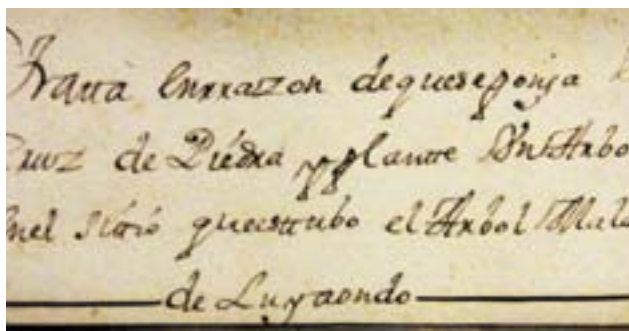 Trata enrrazon dequeseponga
Cruz de Piédra yplantte Vn Arbo
Enel sittió queesttubo el Arbol Mala
de Luyaondo